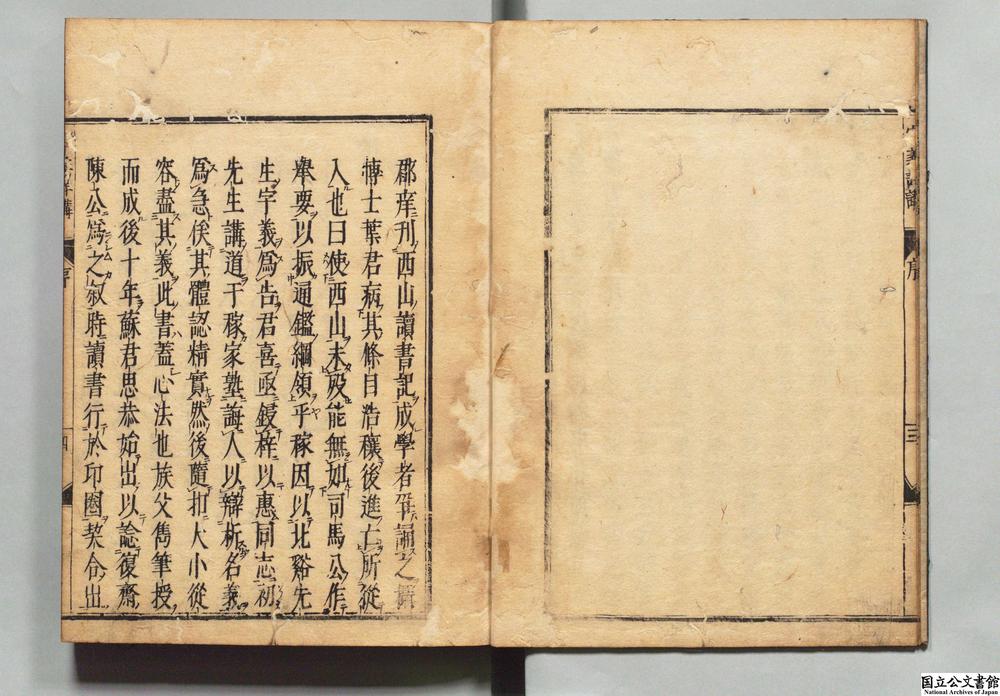 郡庠刊西山讀書記成學者爭誦之
博士葉君病其條目浩穰後進亡所從
入也曰使西山未歿能無如司馬公作
舉要以振通鑑綱領乎稼因以北谿先
生字義爲告君喜亟鋟梓以惠同志初
先生講道于稼家塾誨人以辯析名義
爲急俟其體認精實然後隨扣大小從
容盡其義此書蓋心法也族父雋筆授
而成後十年蘇君思恭始出以諗復齋
陳公爲之敘時讀書行於印圈契合出
序
四
序
三
国立公文書館
National Archives of Japan